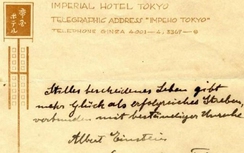 帝国ホテル
IMPERIAL HOTEL TOKYO
TELEGRAPHIC ADDRESS "IMPEHO TOKYO"
TELEPHONE GINZA
Stilles bescheidenes Leben gibt
mehr Glück als erfolgreiches Streben,
verbunden mit beständiger Unruhe.
Albert Einstein